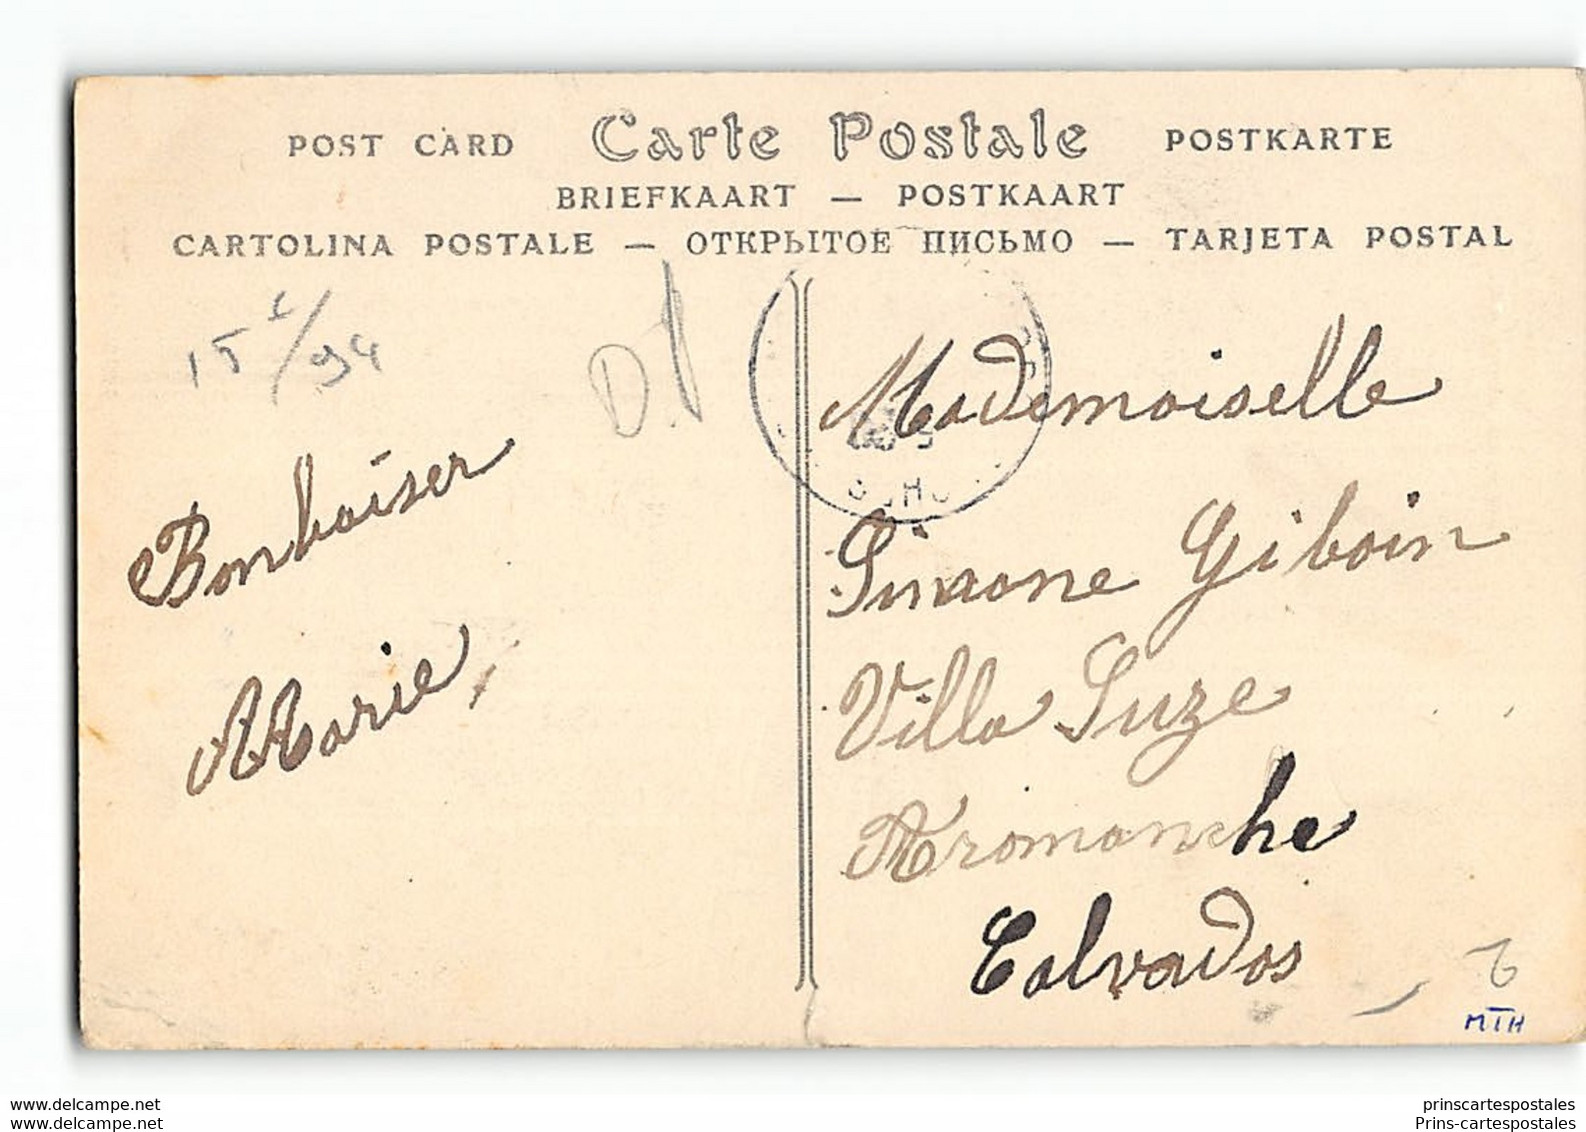 POST CARD Carte Postale POSTKARTE
BRIEFKAART — POSTKAART
CARTOLINA POSTALE — ОТКРЫТОЕ ПИСЬМО — TARJETA POSTAL
Bonbaiser
Marie
Mademoiselle
Simone Giboin
Villa Suze
Aromanche
Calvados
MTH
www.delcampe.net
www.delcampe.net
prinscartespostales
Prins-cartespostales